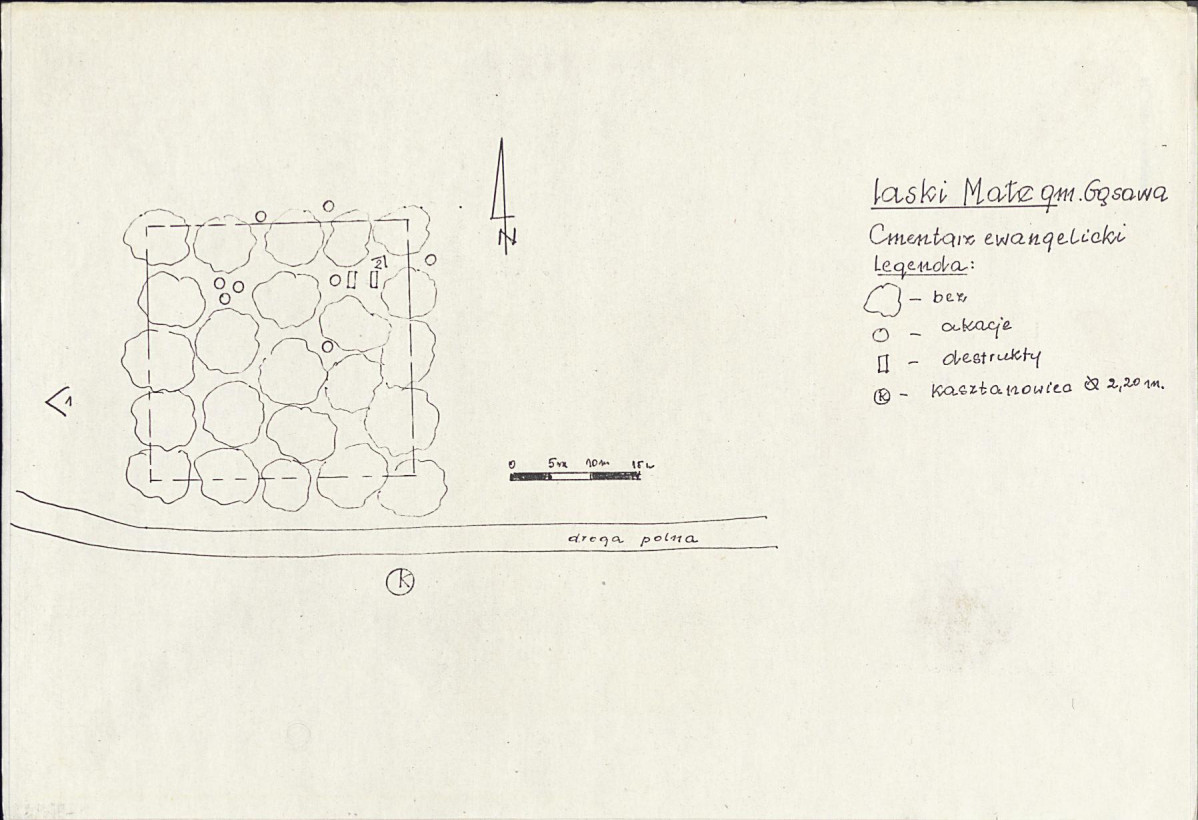 Laski Małe gm. Gąsawa
Cmentarz ewangelicki
Legenda:
– bez
– akacje
– destrukty
K – kasztanowiec ⌀ 2,20 m.
N
2
1
0 5m 10m 15m
droga polna
K